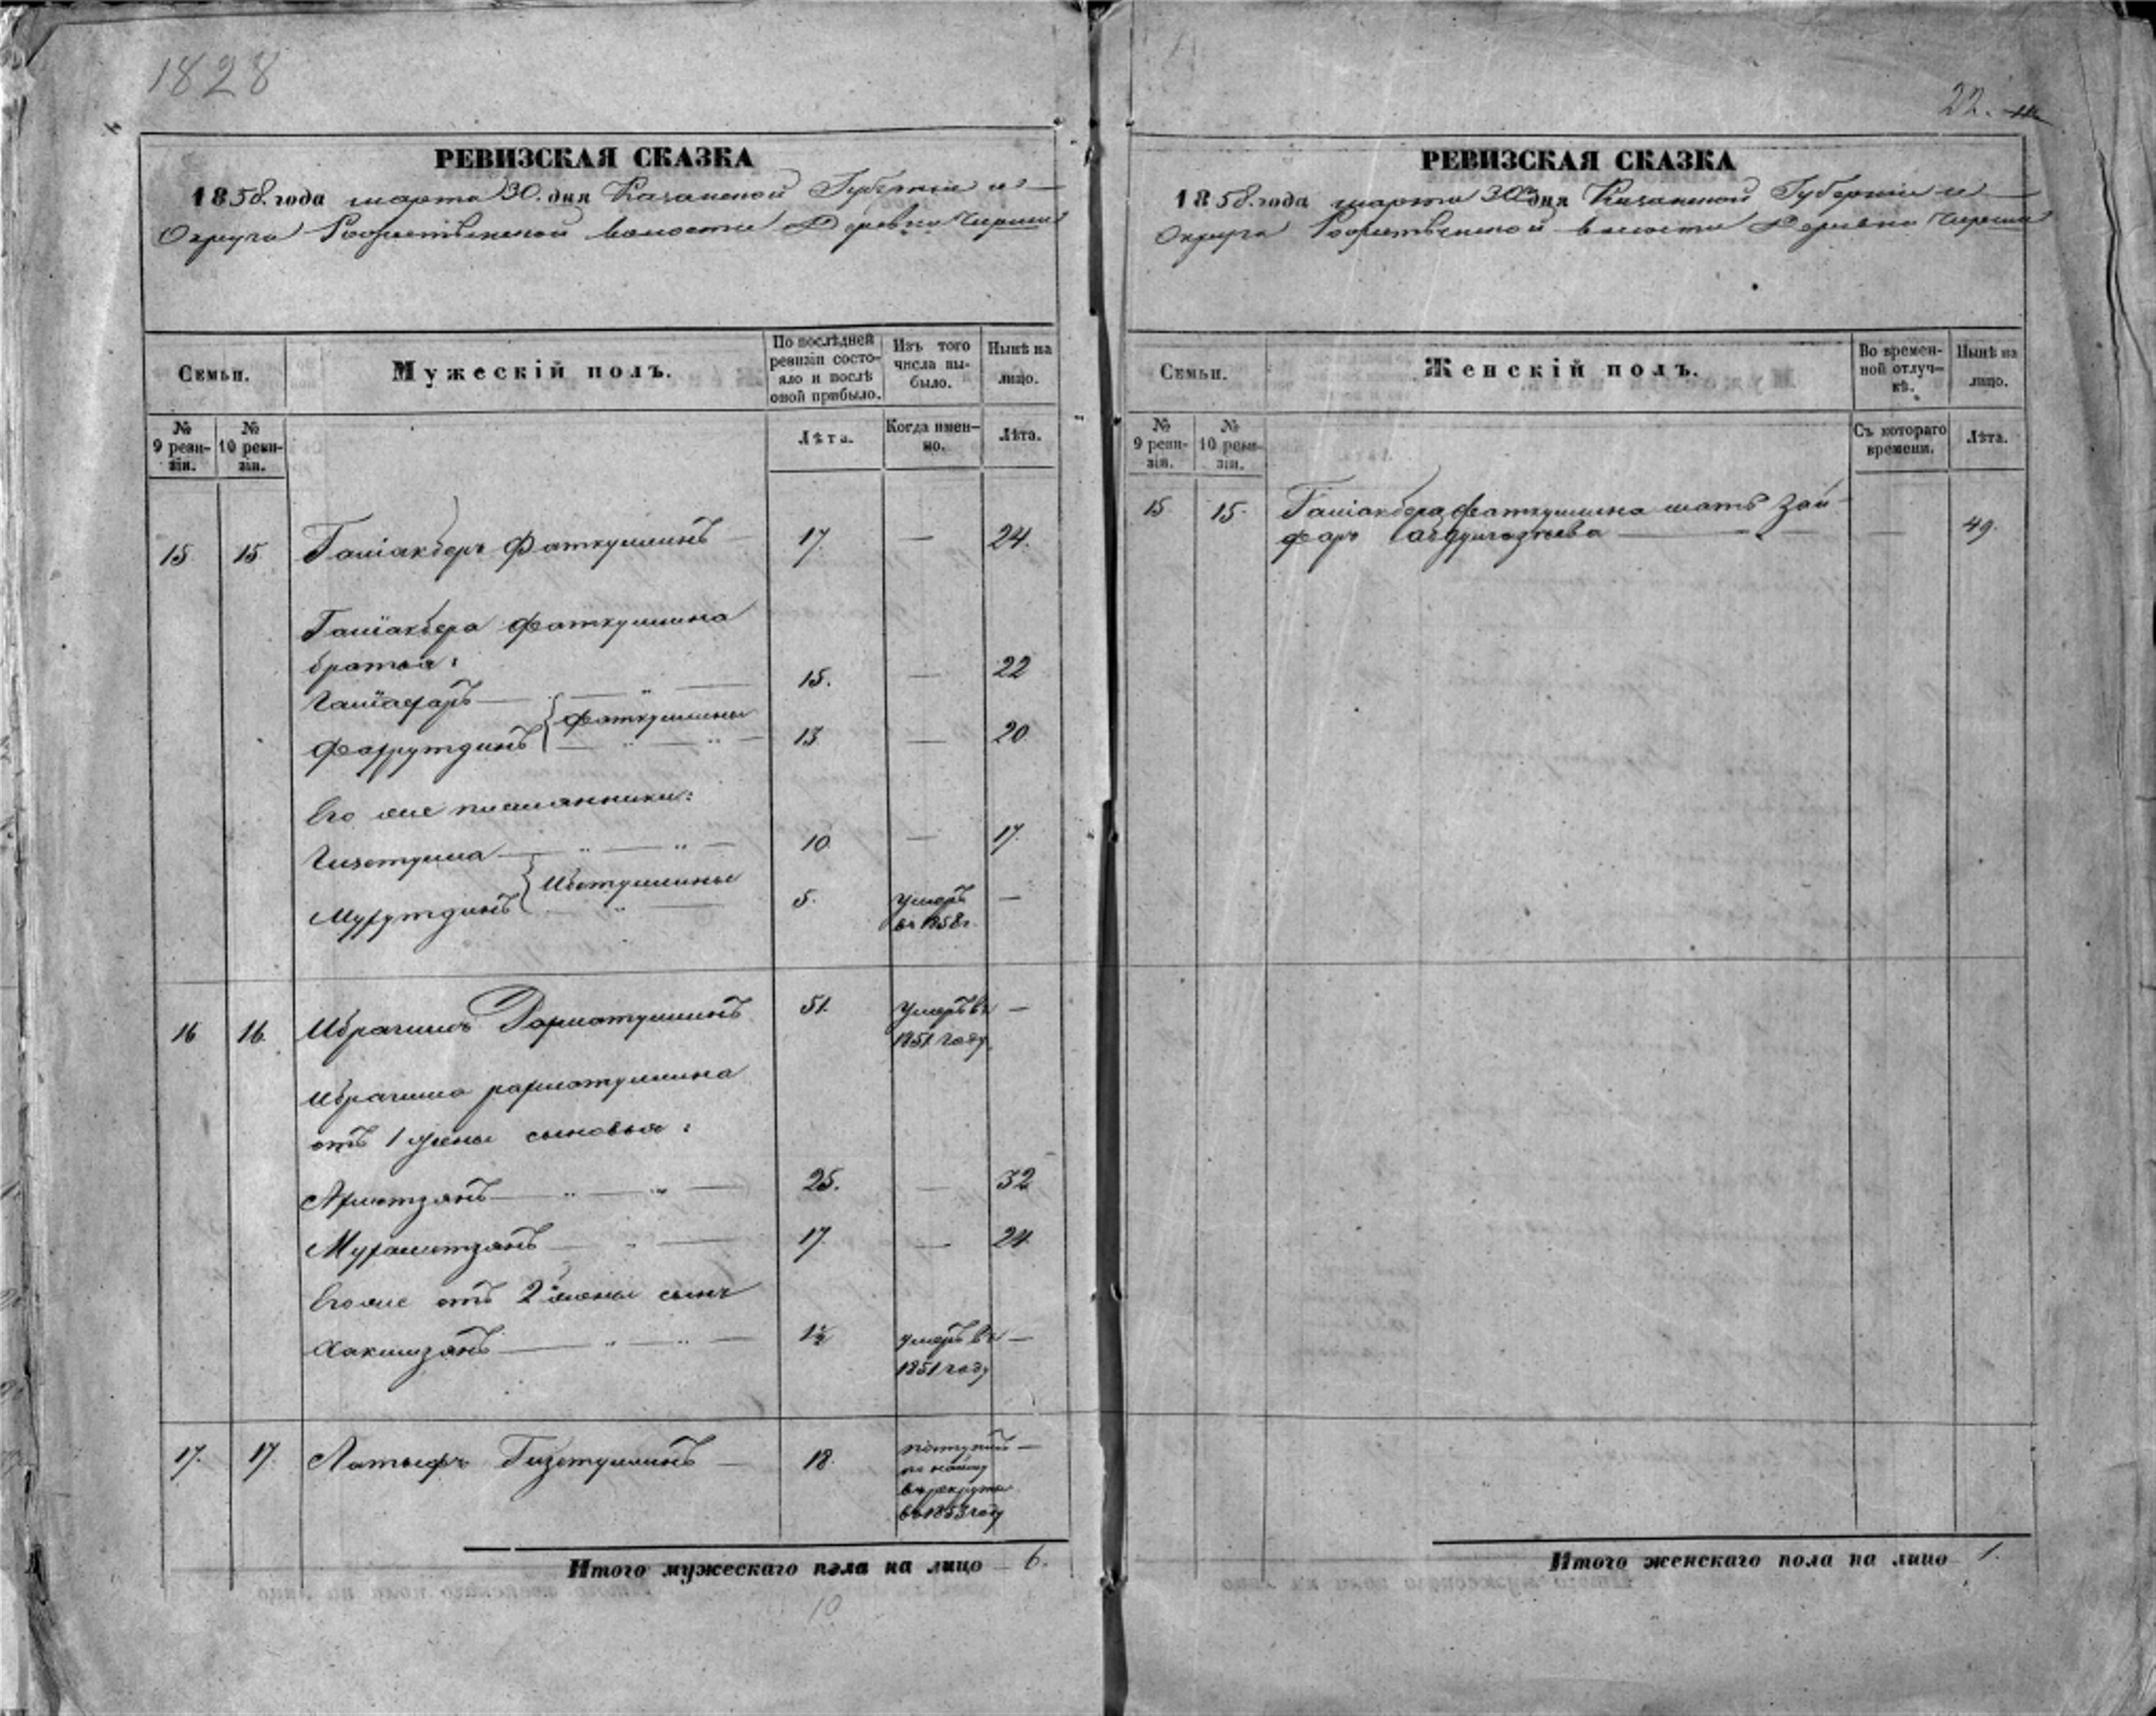 1828
РЕВИЗСКАЯ СКАЗКА
1858. года марта 30. дня Казанской Губернiи и
Округа волости Деревни
Семьи.
Мужескiй полъ.
По послѣдней ревизiи состояло и послѣ оной прибыло.
Изъ того числа выбыло.
Нынѣ на лицо.
№ 9 ревизiи.
№ 10 ревизiи.
Лѣта.
Когда именно.
Лѣта.
15 15 Галiакберъ Фаткуллинъ 17. — 24.
Галiакбера Фаткуллина
братья:
15. — 22
Фаткуллины
Фахрутдинъ 13 — 20.
Его же племянники:
Гизетулла 10. — 17.
Ибетуллины
5. умеръ —
въ 1858 г.
16 16. Ибрагимъ Рахматуллинъ 51. умеръ въ —
1851 году.
Ибрагима рахматуллина
отъ 1 жены сыновья:
Ахметзянъ 25. — 32
Мухаметзянъ 17. — 24.
Его же отъ 2й жены сынъ
Хакимзянъ 1½ умеръ въ —
1851 году
17. 17. Латыфъ Гизетуллинъ — 18. поступилъ —
по найму
въ рекруты
въ 1853 году
Итого мужескаго пола на лицо 6.
10
22.
РЕВИЗСКАЯ СКАЗКА
1858. года марта 30 дня Казанской Губернiи и
Округа волости Деревни
Семьи.
Женскiй полъ.
Во временной отлучкѣ.
Нынѣ на лицо.
№ 9 ревизiи.
№ 10 ревизiи.
Съ котораго времени.
Лѣта.
15. 15. Галiакбера Фаткуллина мать Зай-
фаръ — 49.
Итого женскаго пола на лицо 1.